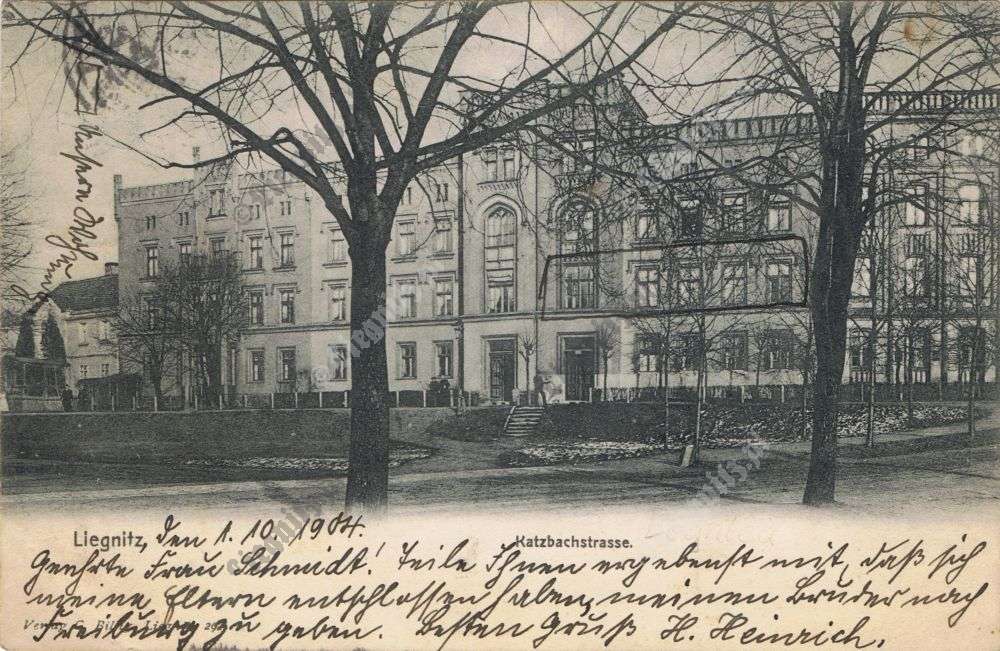 Unsere Wohnung
Liegnitz, den 1. 10. 1904.
Katzbachstrasse.
Geehrte Frau Schmidt! Teile Ihnen ergebenst mit, daß sich
meine Eltern entschlossen haben, meinen Bruder nach
Freiburg zu geben. Besten Gruß H. Heinrich.
Verlag